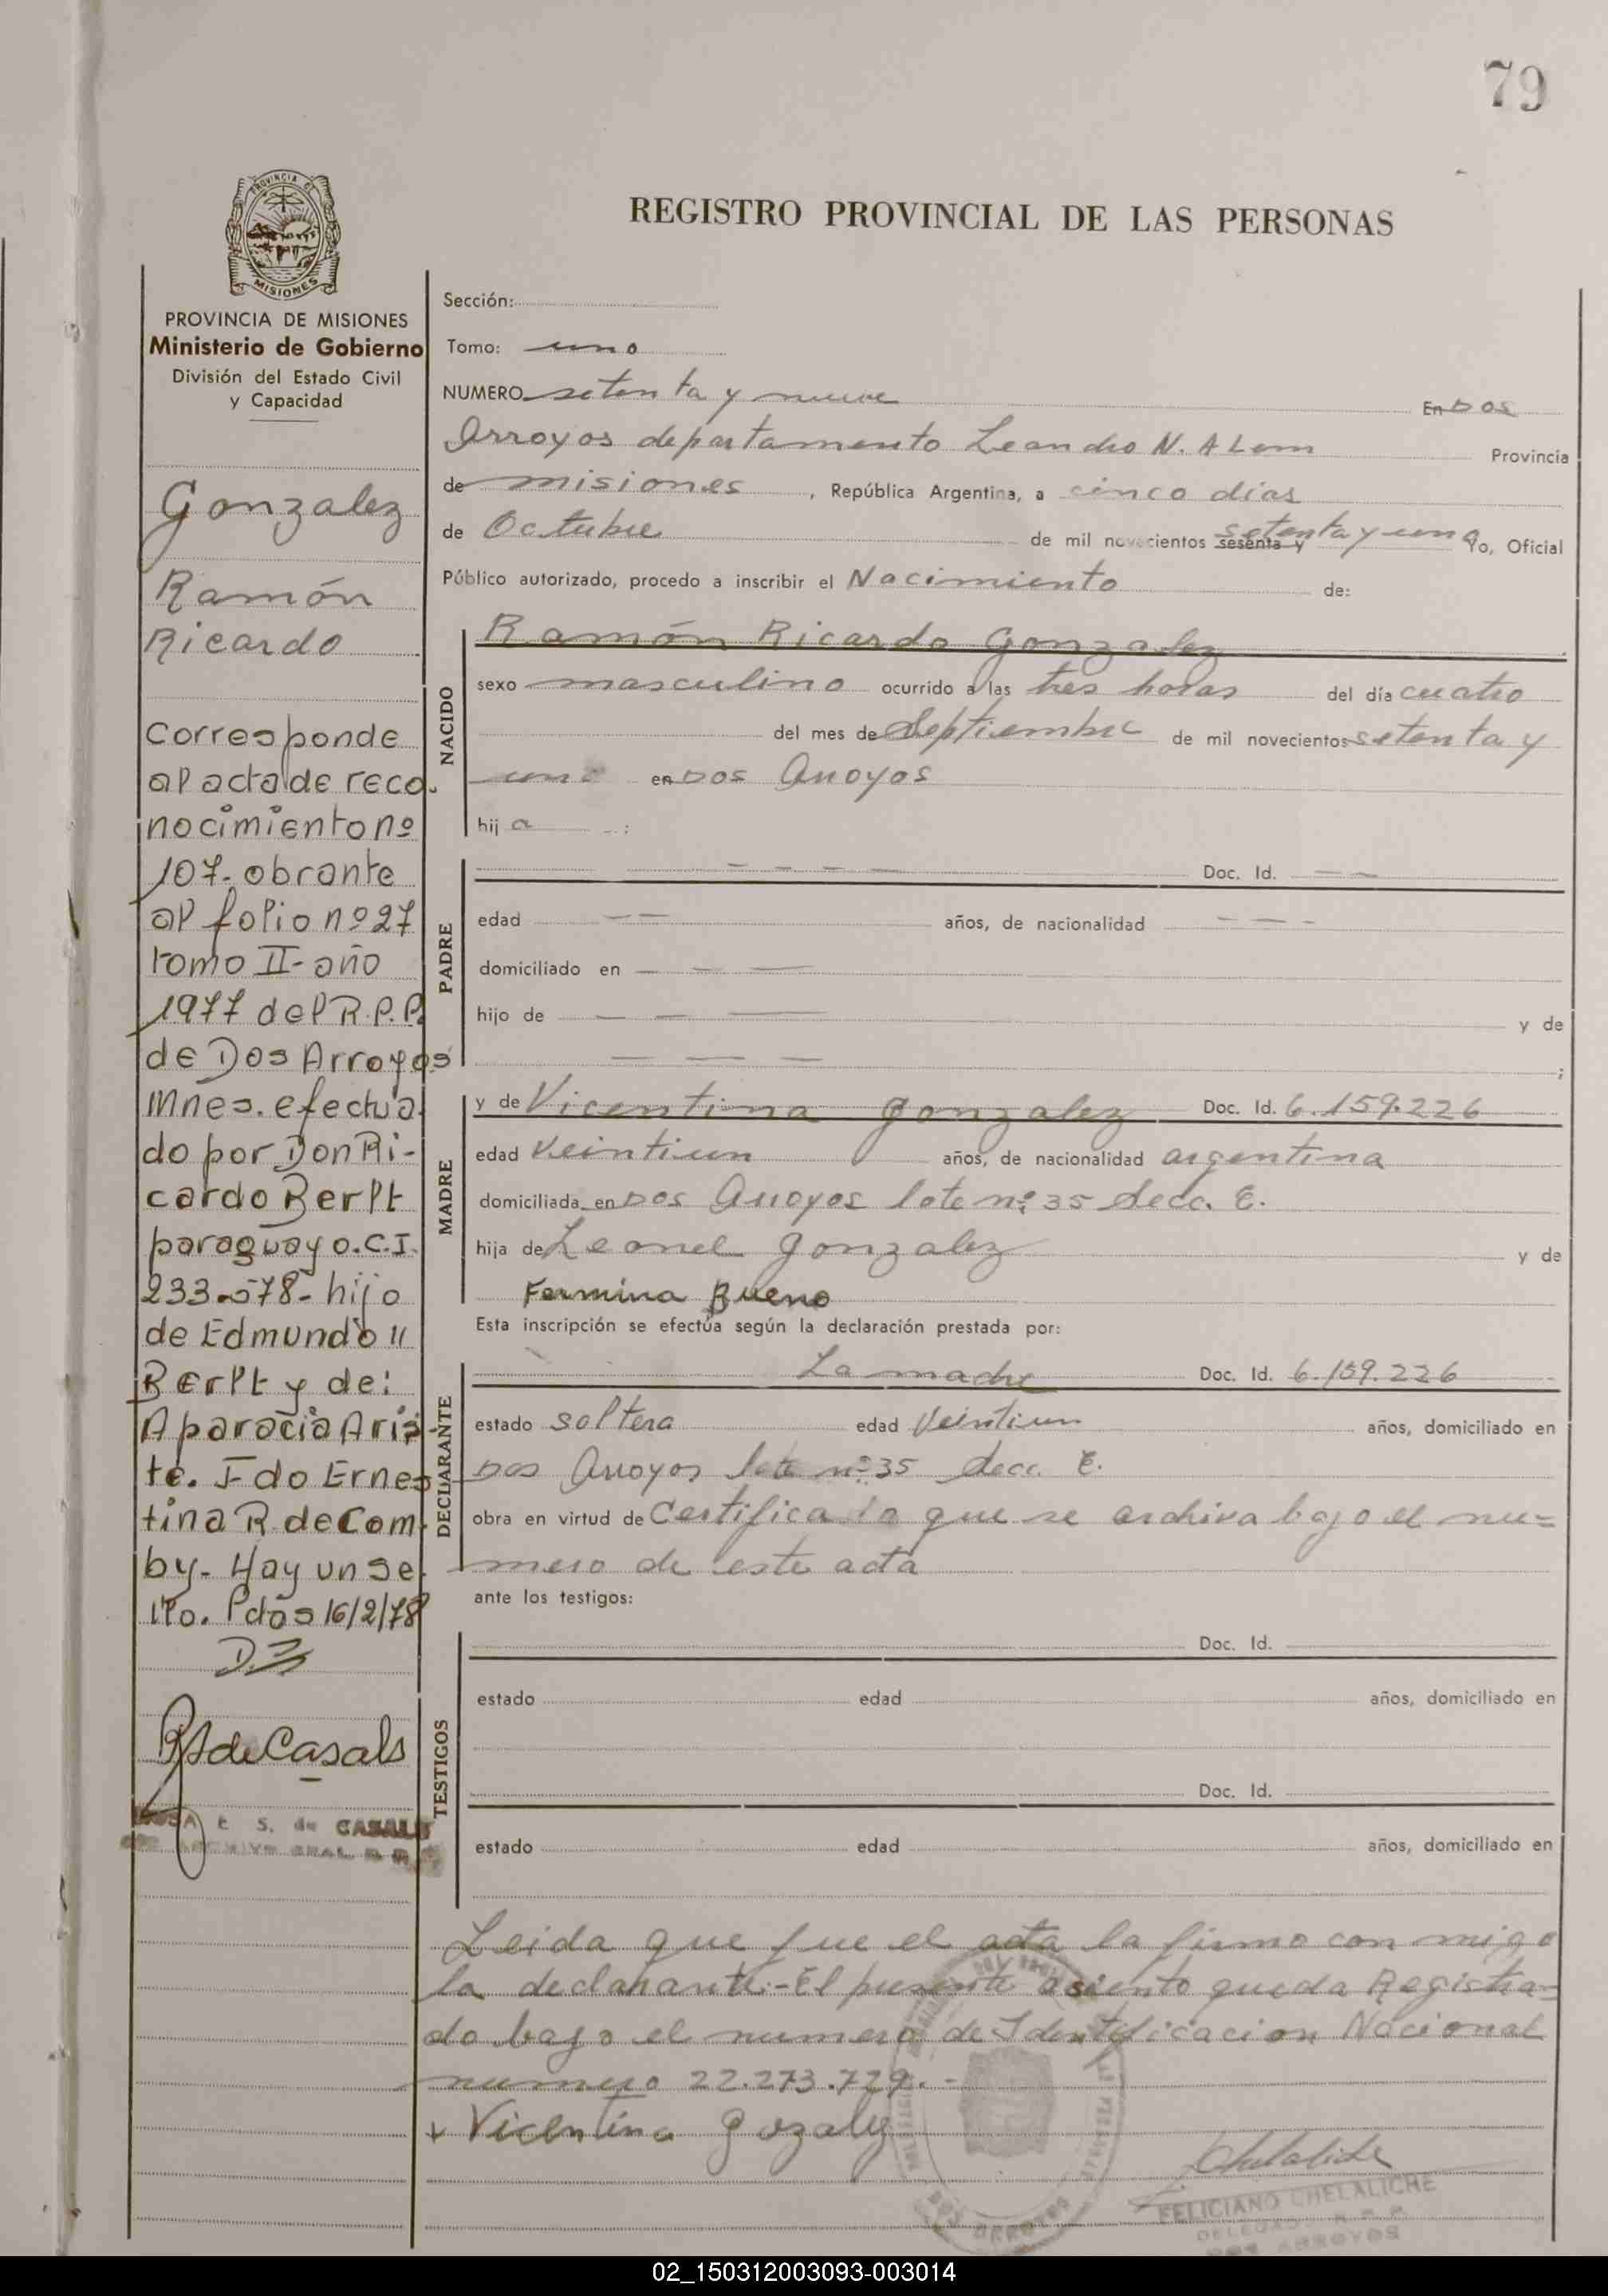 79
PROVINCIA DE
MISIONES
REGISTRO PROVINCIAL DE LAS PERSONAS
PROVINCIA DE MISIONES
Ministerio de Gobierno
División del Estado Civil
y Capacidad
Gonzalez
Ramón
Ricardo
Corresponde
al acta de reco
nocimiento nº
107. obrante
al folio nº 27
tomo II - año
1977 del R.P.P.
de Dos Arroyos
Mnes. efectua
do por Don Ri-
cardo Berlt
paraguayo. C.I.
233.578- hijo
de Edmundo "
Berlt y de:
Aparacia Aris-
te. Fdo Ernes
tina R de Com
by. Hay un se
llo. Pdas 16/2/78
RS de Casals
E S. de CASALS
Sección:
Tomo: uno
NUMERO setenta y nueve En Dos
Arroyos departamento Leandro N. ALem Provincia
de misiones, República Argentina, a cinco días
de Octubre de mil novecientos sesenta y setenta y uno Yo, Oficial
Público autorizado, procedo a inscribir el Nacimiento de:
NACIDO
Ramón Ricardo Gonzalez
sexo masculino ocurrido a las tres horas del día cuatro
del mes de Septiembre de mil novecientos setenta y
uno en Dos Arroyos
hij a :
PADRE
--- Doc. Id. --
edad -- años, de nacionalidad ---
domiciliado en ---
hijo de --- y de
--- ;
MADRE
y de Vicentina Gonzalez Doc. Id. 6.159.226
edad Veintiun años, de nacionalidad argentina
domiciliada en Dos Arroyos lote nº 35 Secc. E.
hija de Leonel Gonzalez y de
Fermina Bueno
Esta inscripción se efectúa según la declaración prestada por:
DECLARANTE
La madre Doc. Id. 6.159.226
estado soltera edad Veintiun años, domiciliado en
Dos Arroyos lote nº 35 Secc. E.
obra en virtud de Certificado que se archiva bajo el nu=
mero de este acta
ante los testigos:
TESTIGOS
Doc. Id.
estado edad años, domiciliado en
Doc. Id.
estado edad años, domiciliado en
Leida que fue el acta la firmo con migo
la declarante.- El presente asiento queda Registra=
do bajo el numero de Identificacion Nacional
numero 22.273.729.-
+ Vicentina gozalez
Chelaliche
FELICIANO CHELALICHE
DELEGADO R. P. P.
DOS ARROYOS
02_150312003093-003014